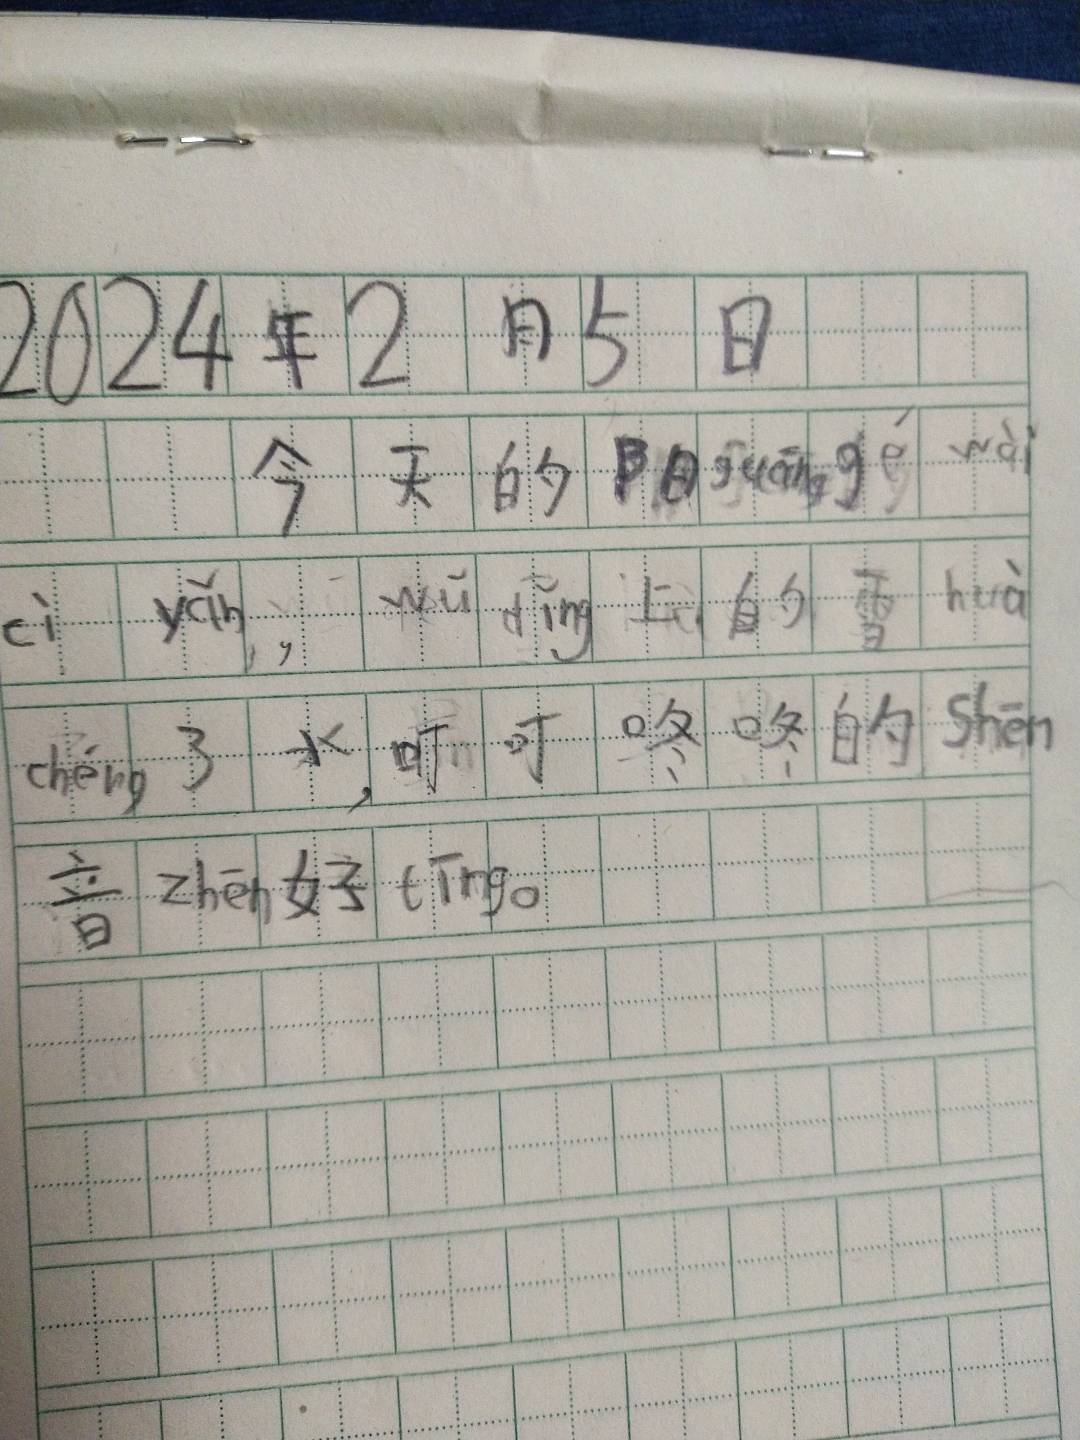 2024年2月5日
今天的阳guānggé wài
cì yǎn,wū dǐng上的雪huà
chéng了水,叮叮咚咚的Shēn
音zhēn好tīng。